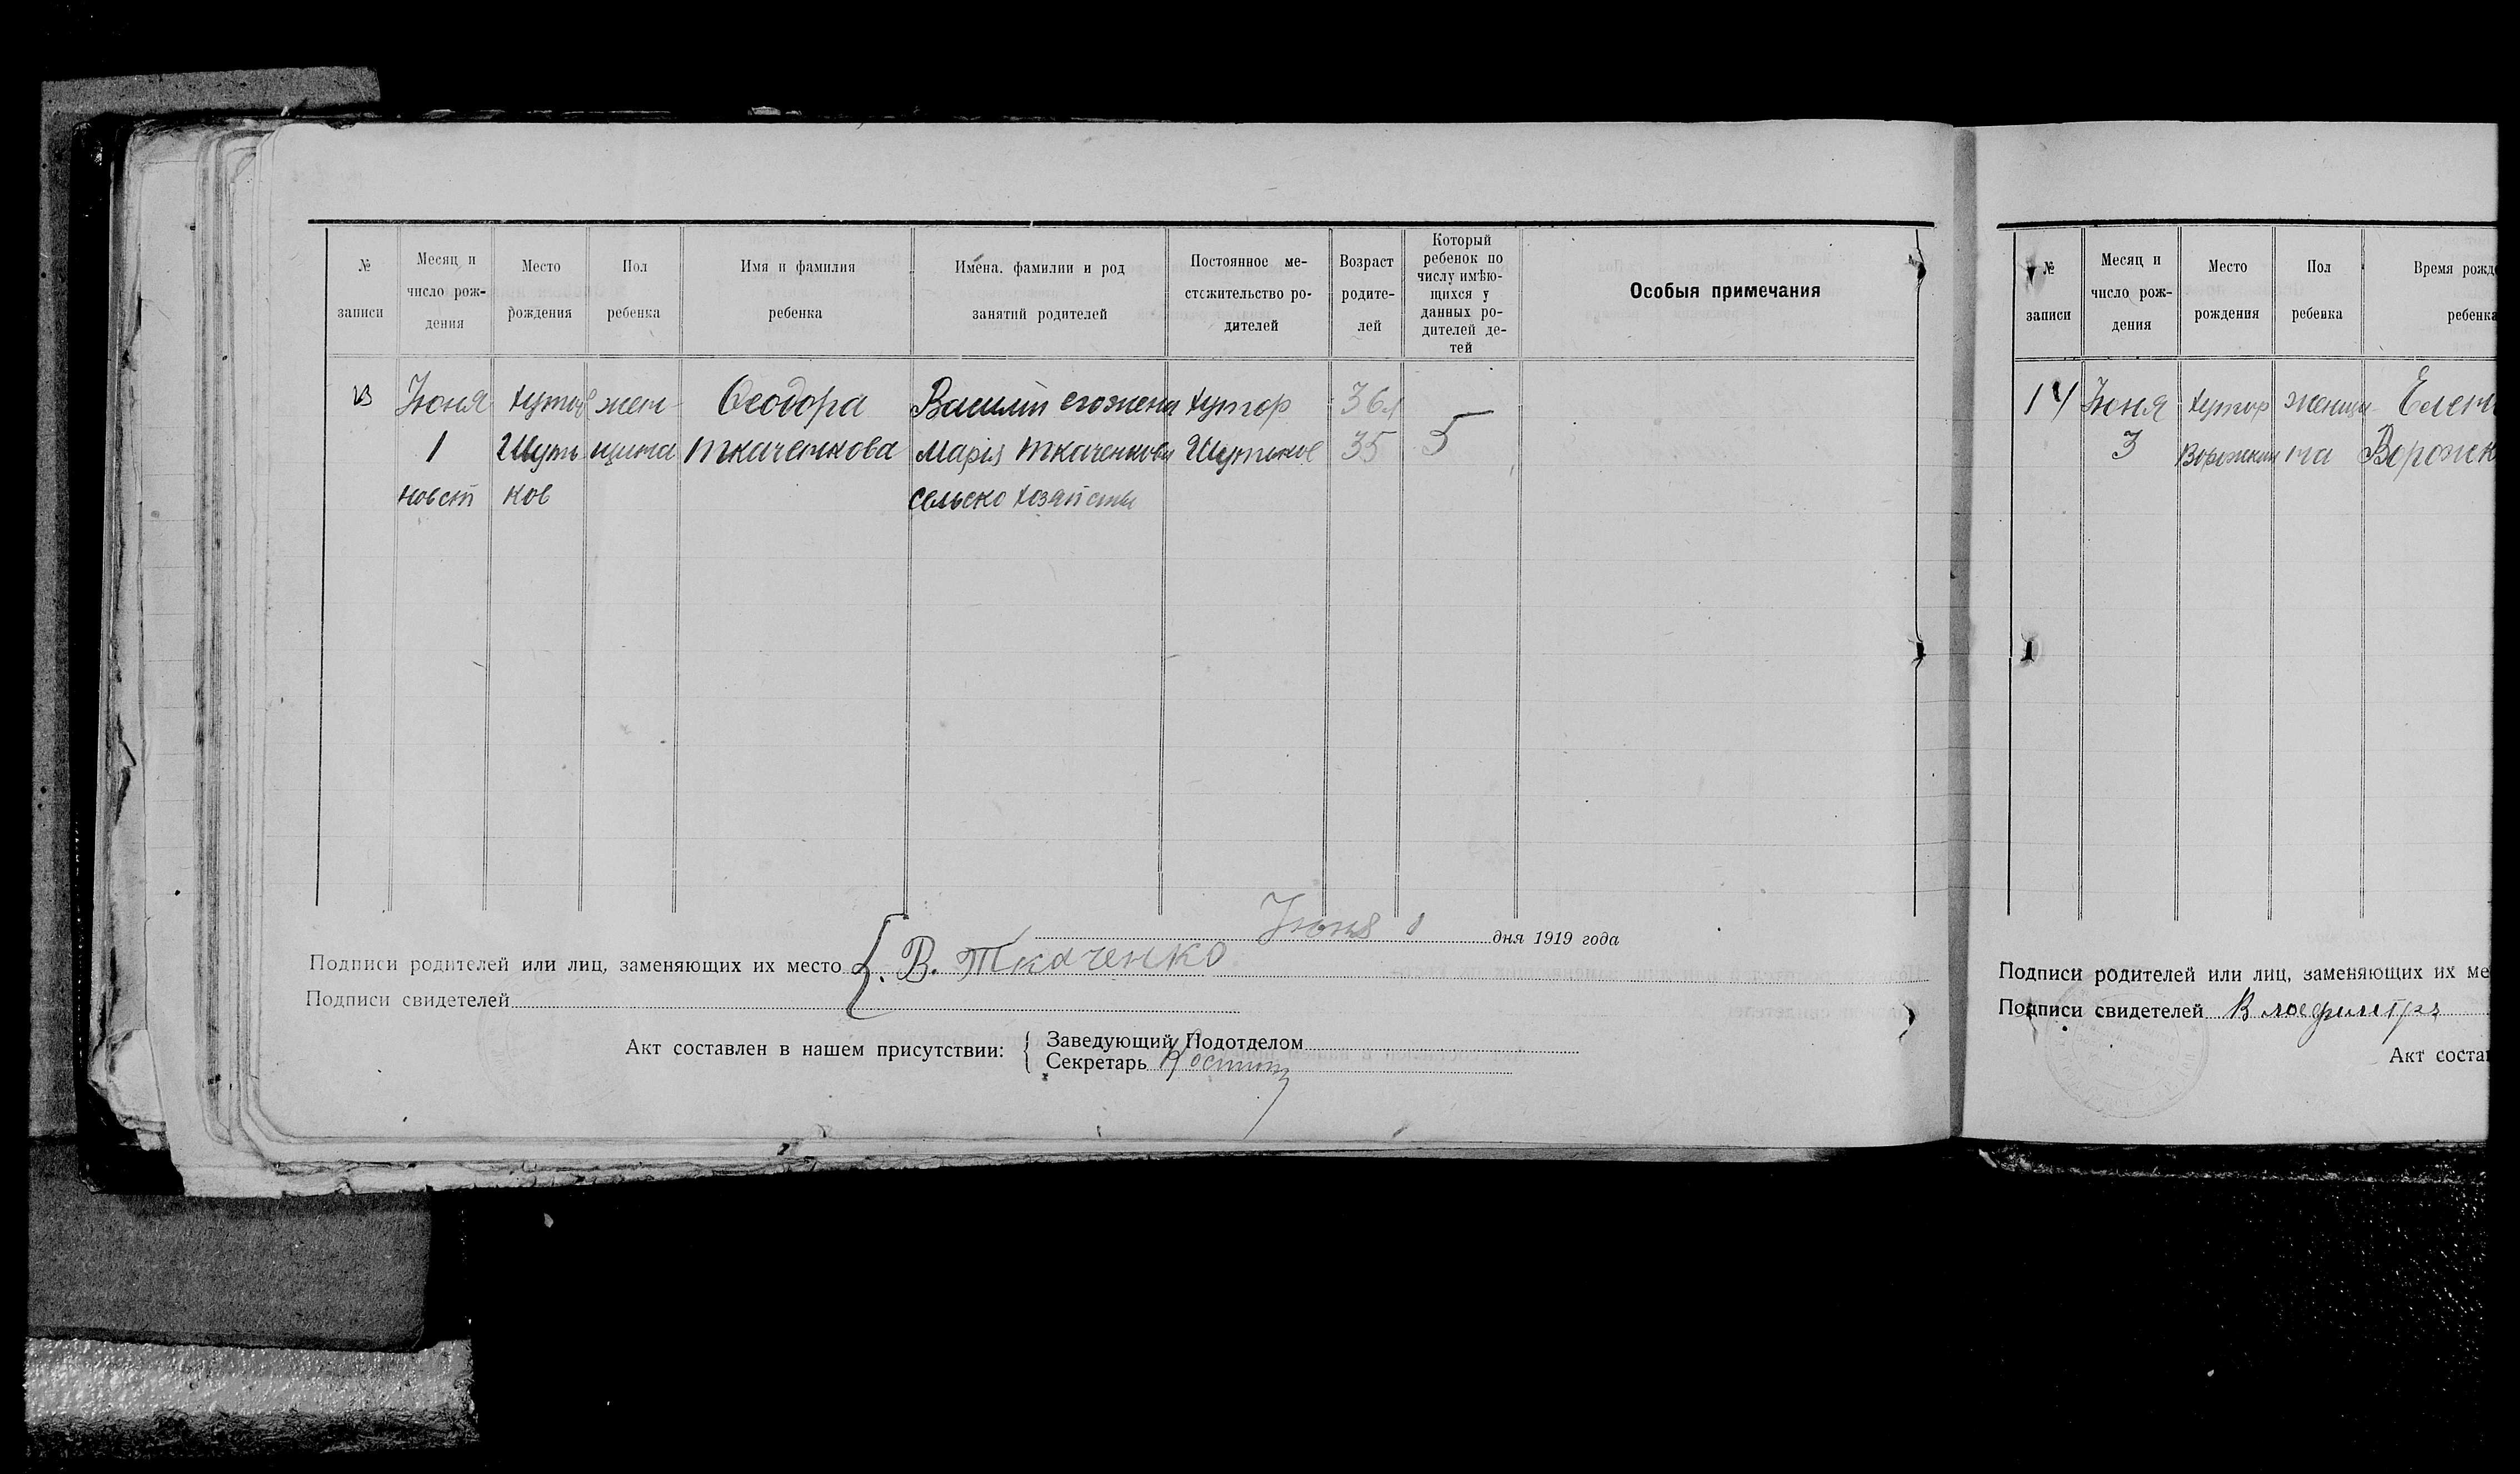 № записи
Месяц и число рож-дения
Место рождения
Пол ребенка
Имя и фамилия ребенка
Имена. фамилии и род занятий родителей
Постоянное ме-стожительство ро-дителей
Возраст родите-лей
Который ребенок по числу имѣю-щихся у данных ро-дителей де-тей
Особыя примечания
13 Июня хутор жен Ѳеодора Василий его жена хутор 36
1 Шуть щина Ткаченкова Марія Ткаченкова Шутьков 35 5
нов ст ков сельско хозяйства
Июня 1 дня 1919 года
Подписи родителей или лиц, заменяющих их место В. Ткаченко
Подписи свидетелей
Акт составлен в нашем присутствии:
Заведующий Подотделом
Секретарь
№ записи
Месяц и число рож-дения
Место рождения
Пол ребенка
Время рожд
ребенка
14 Июня хутор женщи Елен
3 на Ворожк
Подписи родителей или лиц, заменяющих их ме
Подписи свидетелей
Акт соста